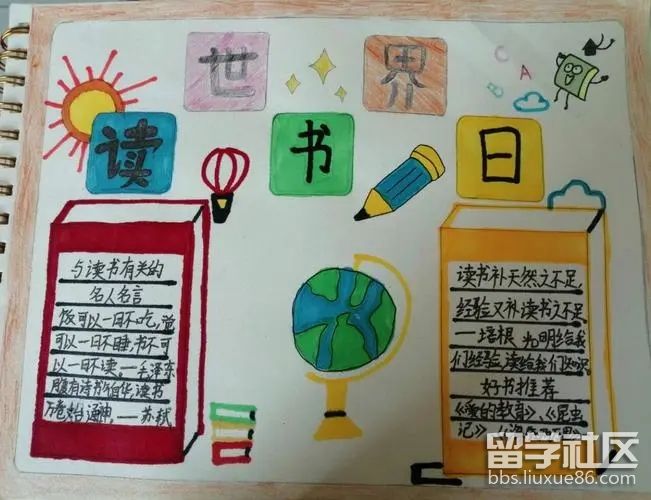 世界
读书日
C
A
与读书有关的
名人名言
饭可以一日不吃,觉
可以一日不睡,书不可
以一日不读。—毛泽东
腹有诗书气自华,读书
万卷始通神。——苏轼
读书补天然之不足,
经验又补读书之不足。
——培根 光明给我
们经验,读给我们知识。
好书推荐
《爱的教育》、《昆虫
记》
留学社区
bbs.liuxue86.com